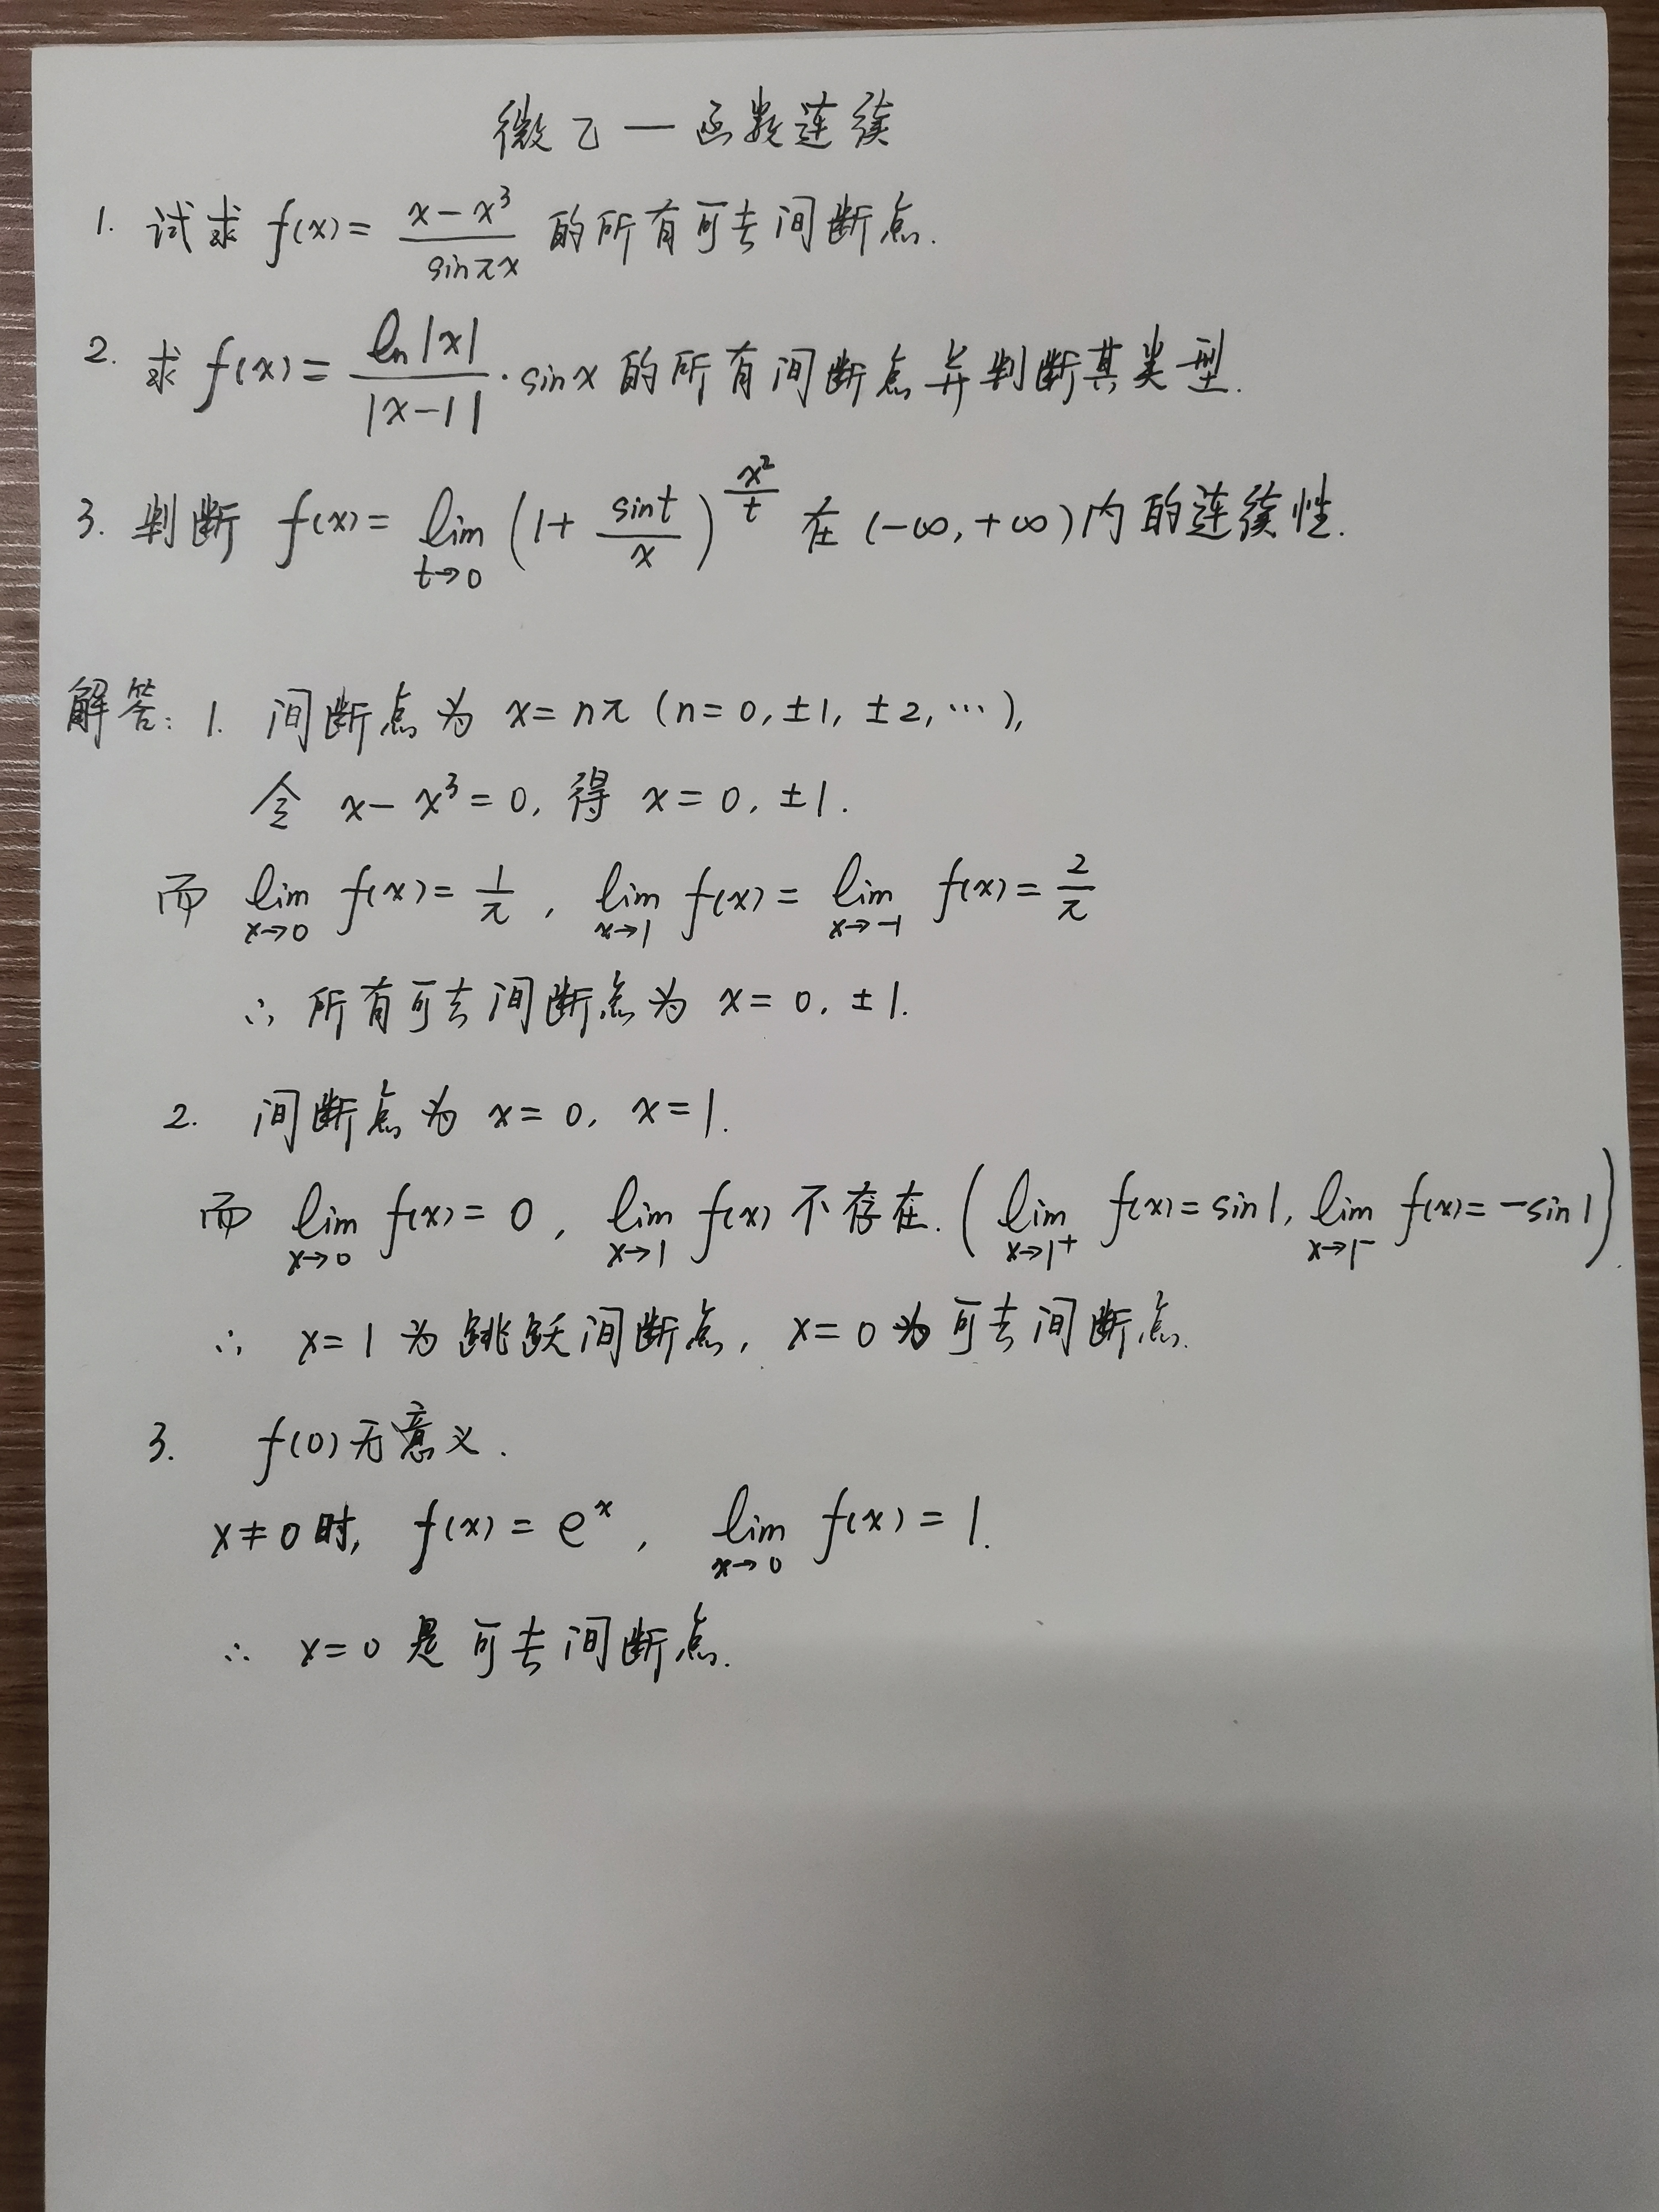 微乙一函数连续
1. 试求 f(x) = \frac{x-x^3}{sinπx} 的所有可去间断点.
2. 求 f(x) = \frac{ln|x|}{|x-1|}·sinx 的所有间断点并判断其类型.
3. 判断 f(x) = \lim_{t→0} (1+\frac{sint}{x})^{\frac{x^2}{t}} 在 (-∞,+∞) 内的连续性.
解答: 1. 间断点为 x=nπ (n=0,±1,±2,…),
令 x-x^3=0, 得 x=0,±1.
而 \lim_{x→0} f(x)=\frac{1}{π}, \lim_{x→1} f(x)=\lim_{x→-1} f(x)=\frac{2}{π}
∴ 所有可去间断点为 x=0,±1.
2. 间断点为 x=0, x=1.
而 \lim_{x→0} f(x)=0, \lim_{x→1} f(x) 不存在. (\lim_{x→1^+} f(x)=sin1, \lim_{x→1^-} f(x)=-sin1).
∴ x=1 为跳跃间断点, x=0 为可去间断点.
3. f(0)无意义.
x≠0时, f(x)=e^x, \lim_{x→0} f(x)=1.
∴ x=0 是可去间断点.